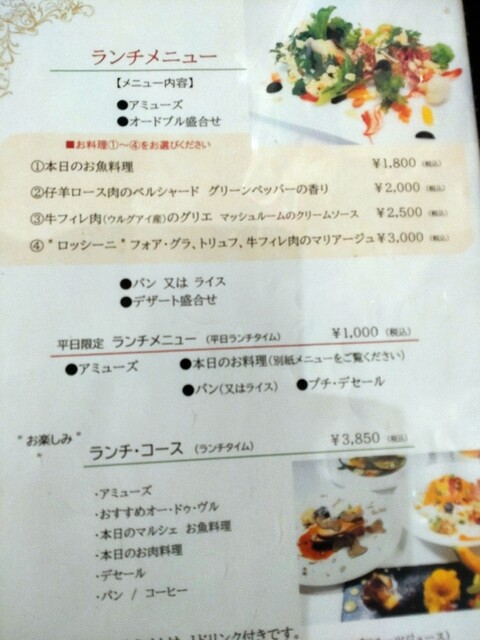 ランチメニュー
【メニュー内容】
●アミューズ
●オードブル盛合せ
■お料理①～④をお選びください
①本日のお魚料理 ￥1,800 (税込)
②仔羊ロース肉のペルシャード グリーンペッパーの香り ￥2,000 (税込)
③牛フィレ肉(ウルグアイ産)のグリエ マッシュルームのクリームソース ￥2,500 (税込)
④"ロッシーニ"フォア・グラ、トリュフ、牛フィレ肉のマリアージュ￥3,000 (税込)
●パン 又は ライス
●デザート盛合せ
平日限定 ランチメニュー (平日ランチタイム) ￥1,000 (税込)
●アミューズ ●本日のお料理(別紙メニューをご覧ください)
●パン(又はライス) ●プチ・デセール
"お楽しみ" ランチ・コース (ランチタイム) ￥3,850 (税込)
・アミューズ
・おすすめオー・ドゥ・ヴル
・本日のマルシェ お魚料理
・本日のお肉料理
・デセール
・パン / コーヒー
1ドリンク付きです。